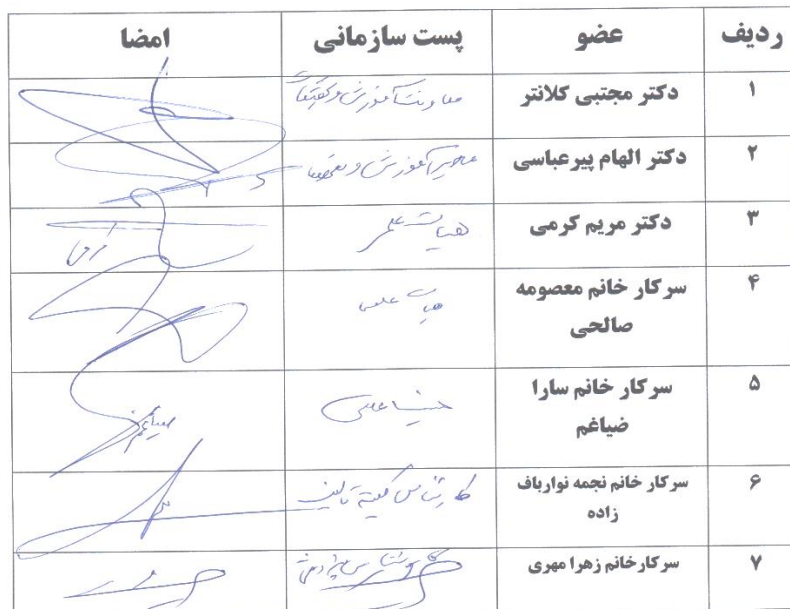 ردیف عضو پست سازمانی امضا
۱ دکتر مجتبی کلانتر معاونت آموزش و تحقیقات
۲ دکتر الهام پیرعباسی مدیر آموزش و تحقیقات
۳ دکتر مریم کرمی هیات علمی
۴ سرکار خانم معصومه
صالحی هیات علمی
۵ سرکار خانم سارا
ضیاغم هیئت علمی
۶ سرکار خانم نجمه نوارباف
زاده کارشناس کمیته تالیف
۷ سرکارخانم زهرا مهری کارشناس